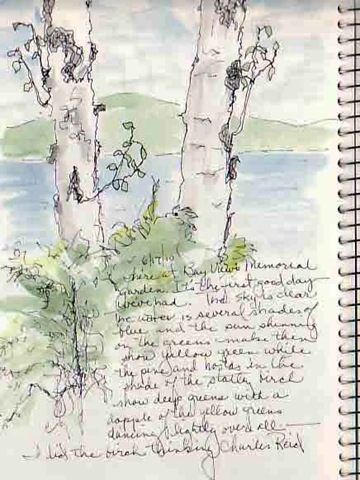 6/17/10
There at Bay View Memorial
Garden. It's the first good day
we've had. The sky is clear
the water is several shades of
blue and the sun shining
on the greens make them
show yellow green while
the pine and in the
shade of the stately birch
show deep greens with a
dapple of the yellow greens
dancing lightly over all —
I did the birch thinking Charles Reid